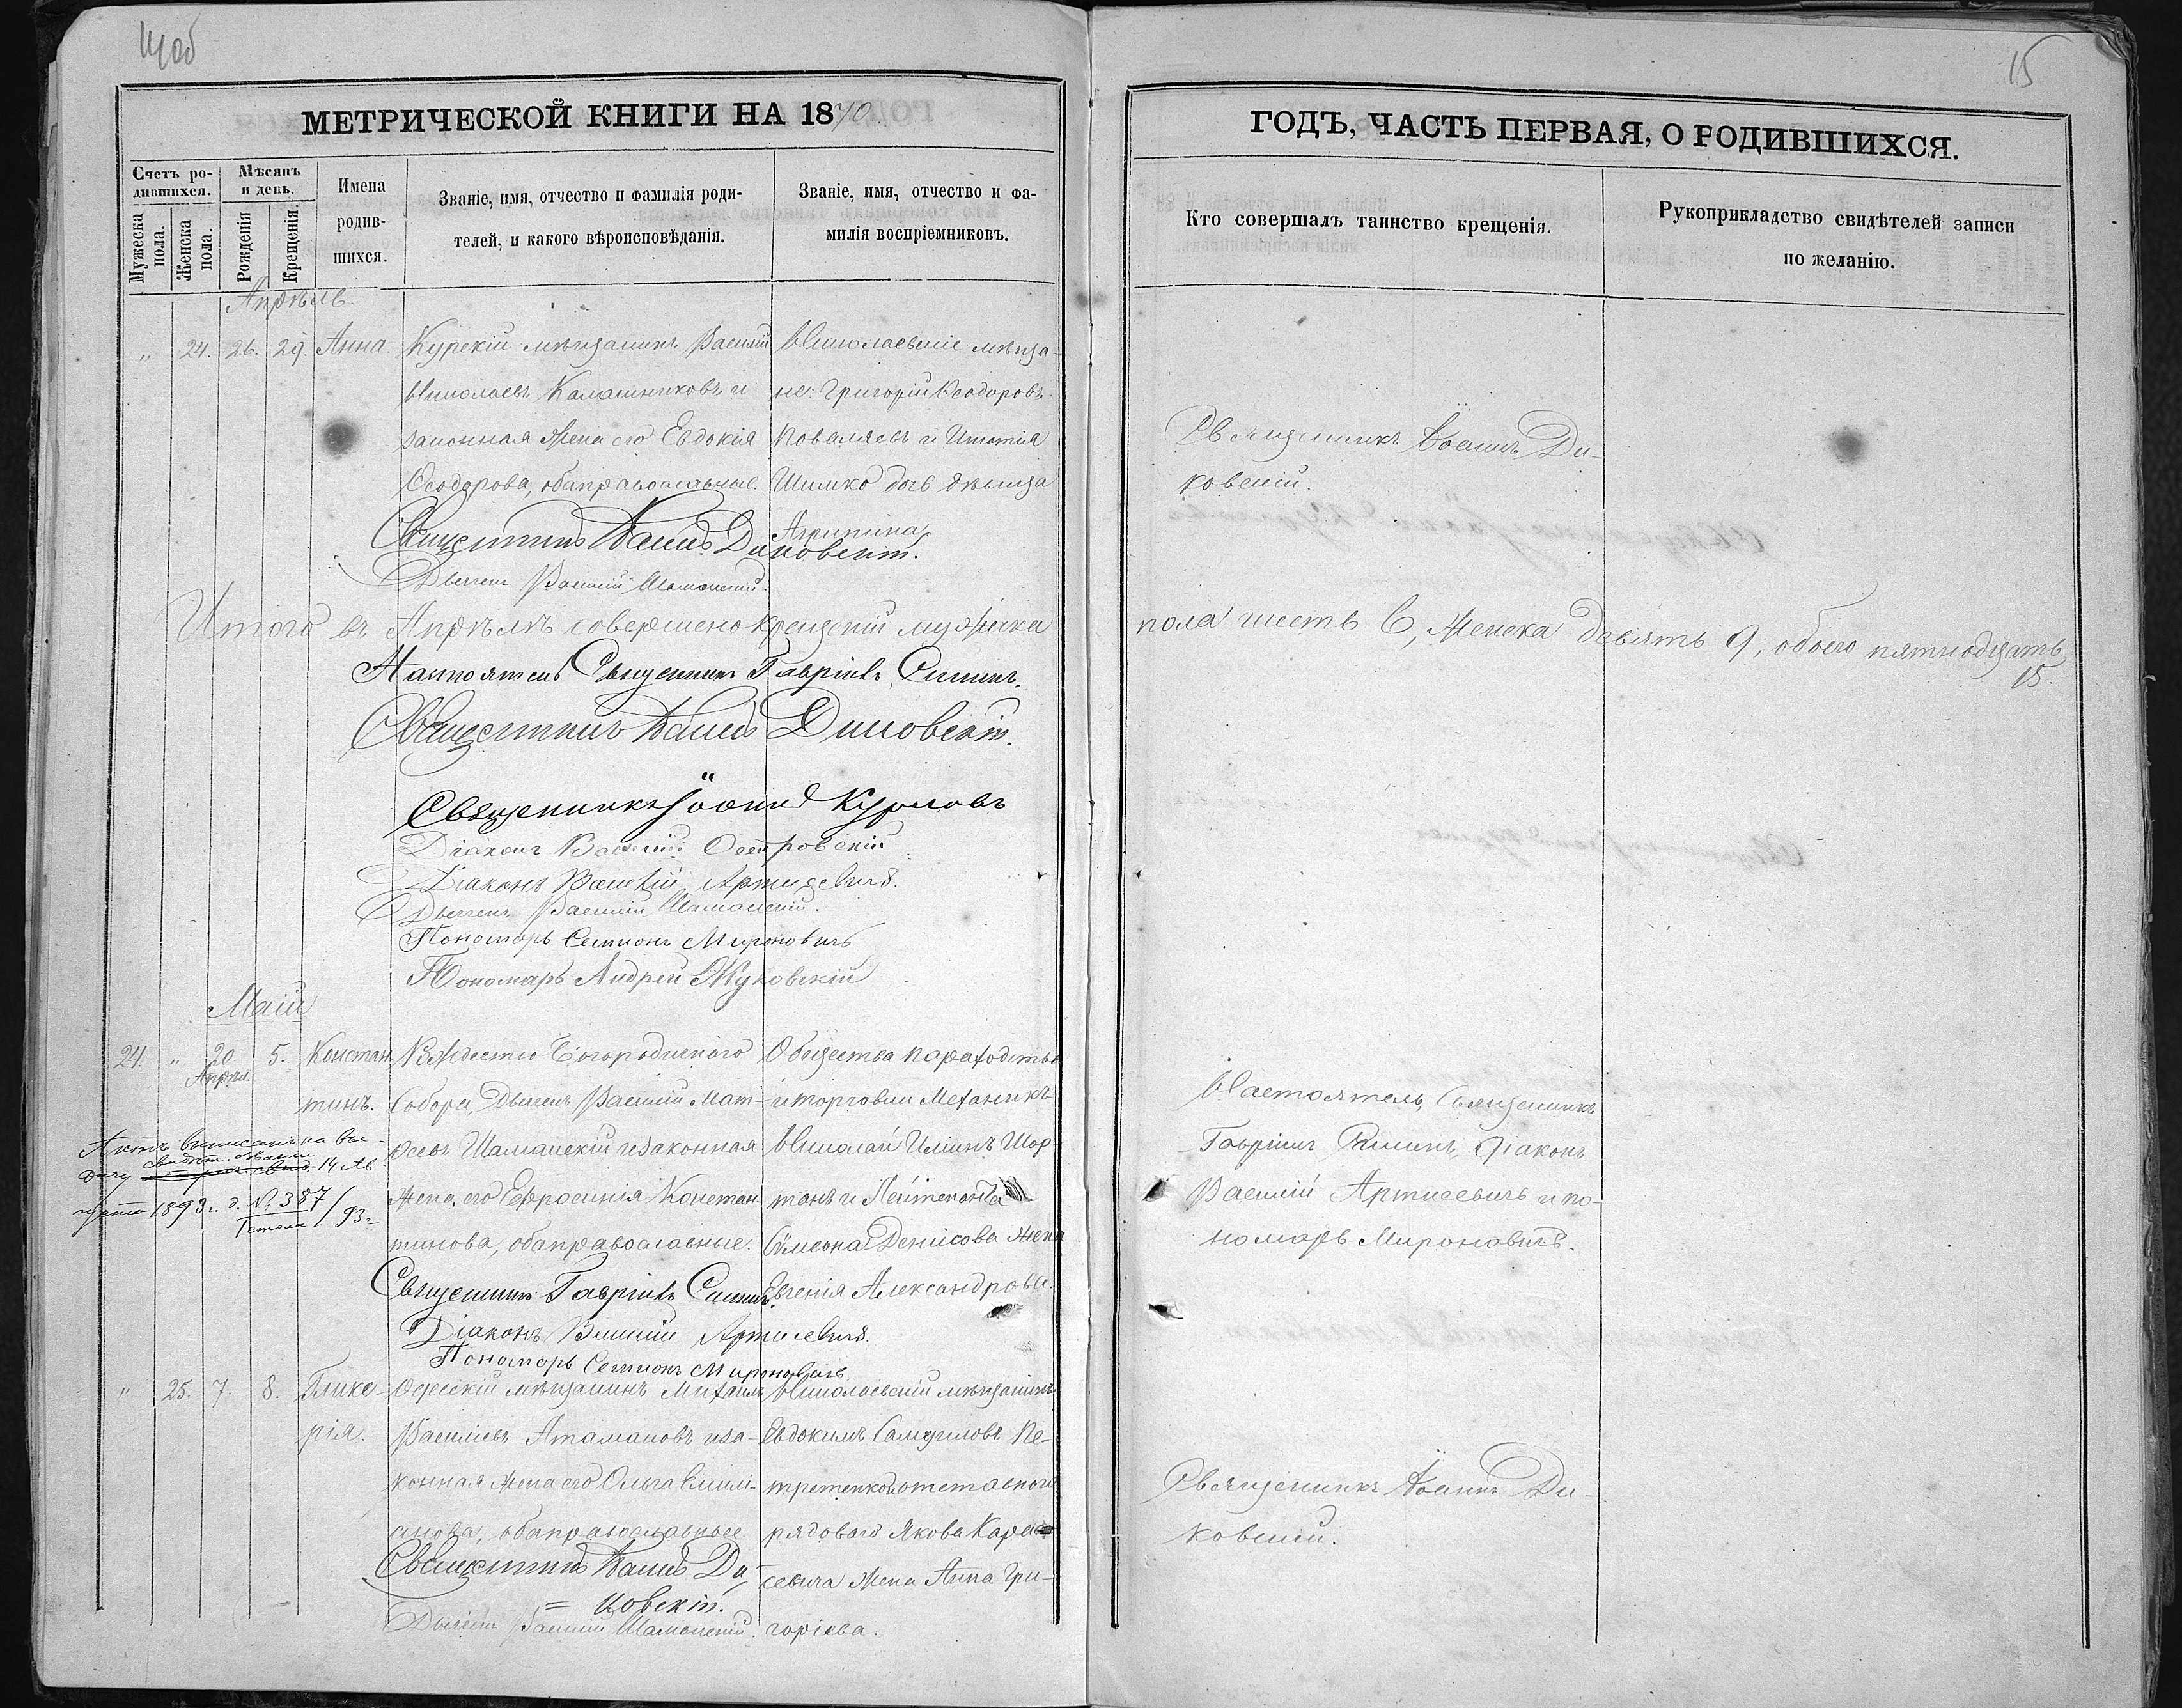 14 об
15
МЕТРИЧЕСКОЙ КНИГИ НА 1870
ГОДЪ, ЧАСТЬ ПЕРВАЯ, О РОДИВШИХСЯ.
Счетъ ро-
дившихся.
Мѣсяцъ
и день.
Мужеска
пола.
Женска
пола.
Рожденія
Крещенія.
Имена
родив-
шихся.
Званіе, имя, отчество и фамилія роди-
телей, и какого вѣроисповѣданія.
Званіе, имя, отчество и фа-
милія воспріемниковъ.
Кто совершалъ таинство крещенія.
Рукоприкладство свидѣтелей записи
по желанію.
Апрѣль
„ 24. 26. 29. Анна
Курскій мѣщанинъ Василій
Николаевъ Калашниковъ и
законная жена его Евдокія
Ѳеодорова, оба православные.
Николаевскіе мѣща-
не: Григорій Ѳеодоровъ
Ковалевъ и Игнатія
Шимко дочь дѣвица
Агрипина
Священникъ Іоаннъ Ди-
ковскій.
Священникъ Іоаннъ Диковскій.
Дьячекъ Василій Шаманскій.
Итого въ Апрѣлѣ совершено крещеній мужеска
пола шесть 6, женска девять 9, обоего пятнадцать
15.
Настоятель Священникъ Гавріилъ Силинъ.
Священникъ Іоаннъ Диковскій.
Священникъ Іоаннъ Курловъ
Діаконъ Василій Островскій
Діаконъ Василій Артисевичъ.
Дьячекъ Василій Шаманскій.
Пономарь Семионъ Мироновичъ
Пономарь Андрей Жуковскій
Маій
24. „ 20 Апрѣл. 5. Констан
тинъ.
Рождество Богородичнаго
Собора, Дьячекъ Василій Мат-
ѳеевъ Шаманскій и законная
жена его Ефросинія Констан
тинова, оба православные.
Общества пароходства
и торговли Механикъ
Николай Ильинъ Шор-
танъ и Лейтенанта
Симеона Денисова жена
Евгенія Александровы.
Настоятель, Священникъ
Гавріилъ Силинъ, Діаконъ
Василій Артисевичъ и по-
номарь Мироновичъ.
Актъ выписанъ на вы-
дачу свидѣт. 14 Ав
густа 1893 г. д. № 387/93 г.
Священникъ Гавріилъ Силинъ.
Діаконъ Василій Артисевичъ.
Пономарь Семионъ Мироновичъ
„ 25. 7. 8. Глике-
рія.
Одесскій мѣщанинъ Михаилъ
Василіевъ Атамановъ и за-
конная жена его Ольга Емили-
анова, оба православные
Николаевскій мѣщанинъ
Евдокимъ Самуиловъ Пе-
тренко и отставного
рядоваго Якова Кара
севича жена Анна Гри-
горіева.
Священникъ Іоаннъ Ди-
ковскій.
Священникъ Іоаннъ Ди-
= ковскій.
Дьячекъ Василій Шаманскій.